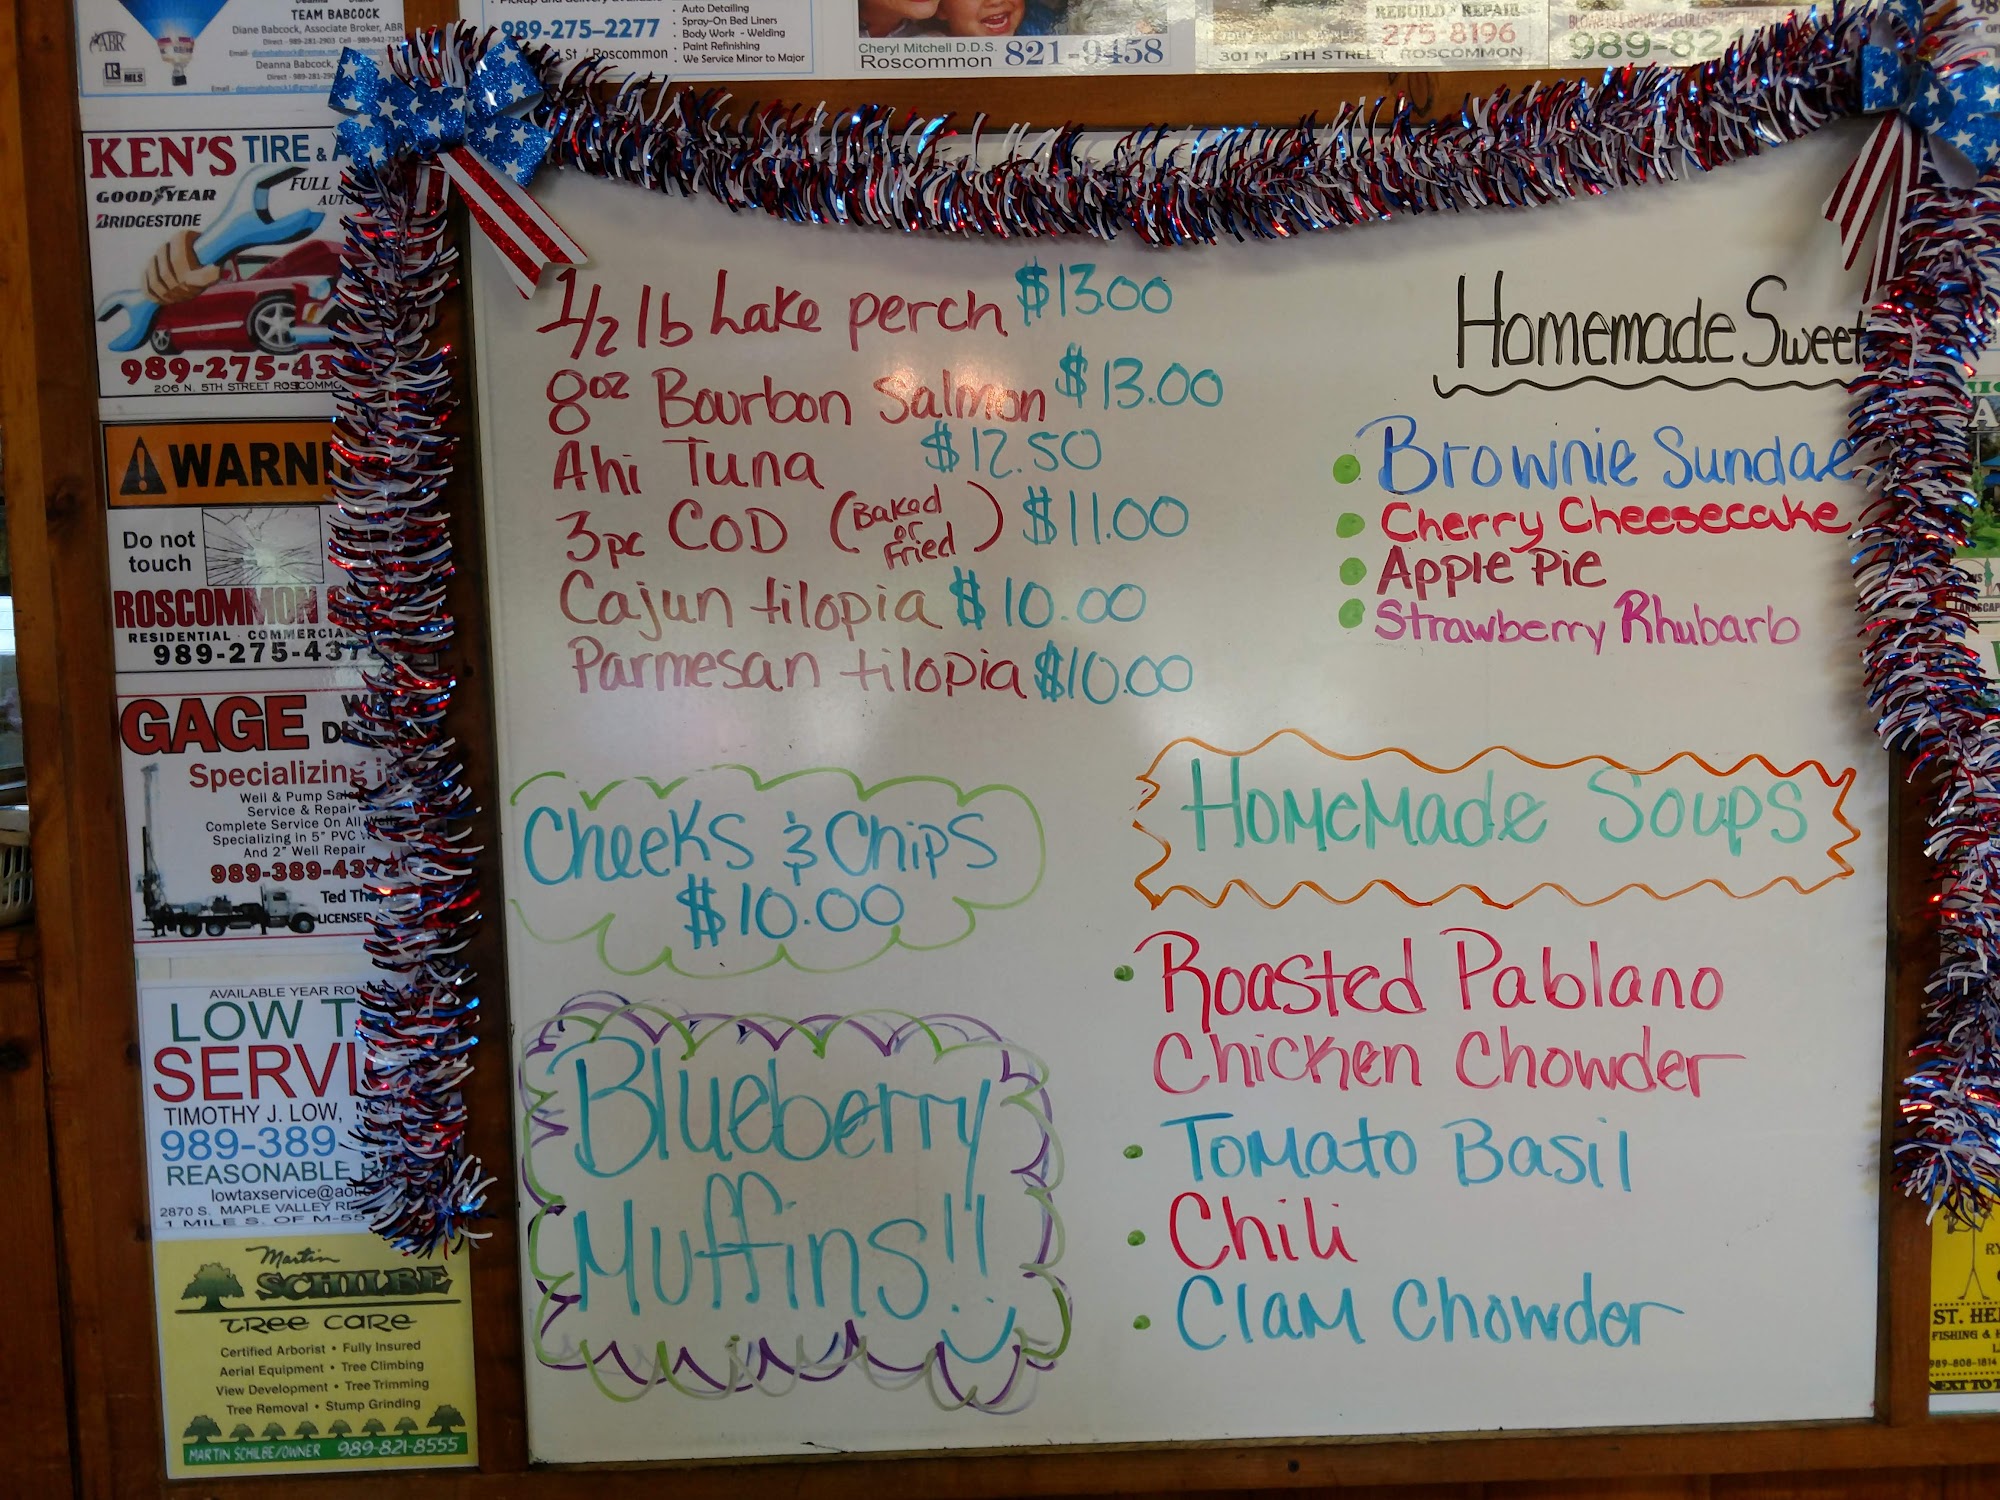 TEAM BABCOCK
Diane Babcock, Associate Broker, ABR
Direct - 989-281-2903 Cell - 989-942-7342
Deanna Babcock,
ABR
MLS
989-275-2277
St / Roscommon
Auto Detailing
Spray-On Bed Liners
Body Work - Welding
Paint Refinishing
We Service Minor to Major
Cheryl Mitchell D.D.S.
Roscommon 821-9458
REBUILD REPAIR
275-8196
301 N. 5TH STREET ROSCOMMON
989-82
KEN'S TIRE & A
GOODYEAR
BRIDGESTONE
FULL
AUTO
989-275-43
206 N. 5TH STREET ROSCOMMO
WARNI
Do not
touch
ROSCOMMON
RESIDENTIAL · COMMERCIA
989-275-437
GAGE
Specializing i
Well & Pump Sales
Service & Repair
Complete Service On All Wells
Specializing in 5" PVC
And 2" Well Repair
989-389-4372
Ted
LICENSED
AVAILABLE YEAR ROU
LOW T
SERVI
TIMOTHY J. LOW,
989-389-
REASONABLE
lowtaxservice@aol.
2870 S. MAPLE VALLEY RD
1 MILE S. OF M-55
Martin
SCHILBE
TREE CARE
Certified Arborist • Fully Insured
Aerial Equipment • Tree Climbing
View Development • Tree Trimming
Tree Removal • Stump Grinding
MARTIN SCHILBE/OWNER 989-821-8555
1/2 lb Lake perch $13.00
8oz Bourbon Salmon $13.00
Ahi Tuna $12.50
3pc COD (Baked or Fried) $11.00
Cajun tilopia $10.00
Parmesan tilopia $10.00
Cheeks & Chips
$10.00
Blueberry
Muffins!!
Homemade Sweet
• Brownie Sundae
• Cherry Cheesecake
• Apple Pie
• Strawberry Rhubarb
Homemade Soups
• Roasted Pablano
Chicken Chowder
• Tomato Basil
• Chili
• Clam Chowder
ST. HE
FISHING &
989-808-1814
NEXT TO T